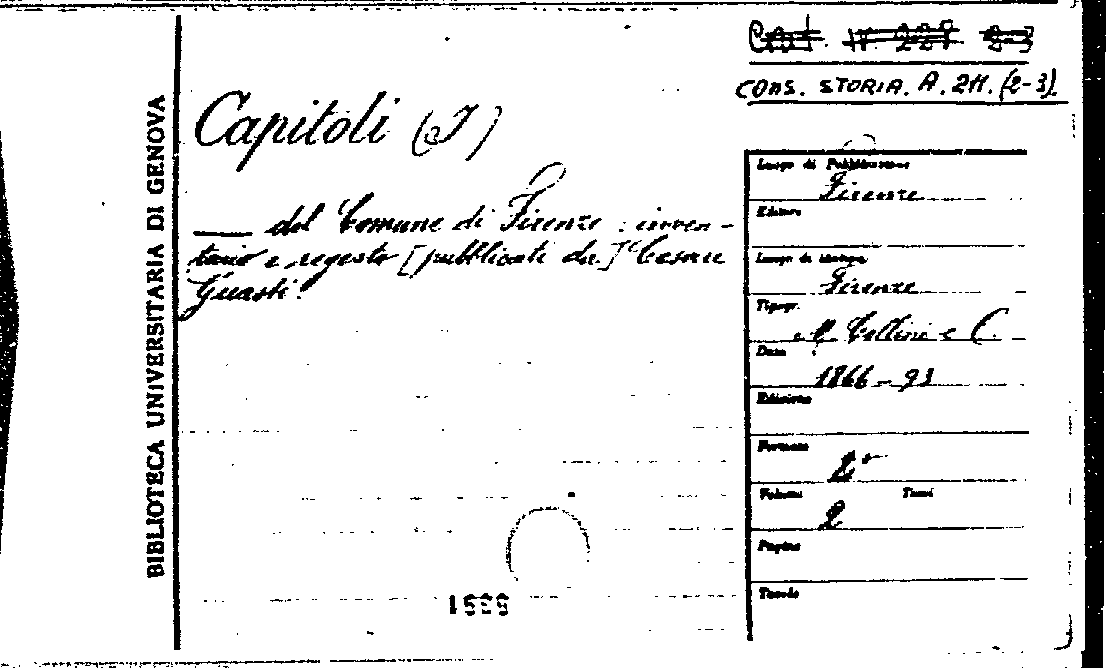 BIBLIOTECA UNIVERSITARIA DI GENOVA
CONS. STORIA. A. 211. (2-3).
Capitoli (I)
del Comune di Firenze: inven-
tario e regesto [pubblicati da] Cesare
Guasti.
Luogo di Pubblicazione
Firenze
Editore
Luogo di stampa
Firenze
Tipogr.
M. Cellini e C.
Data
1866-93
Edizione
Formato
2°
Volumi Tomi
2
Pagine
Tavole